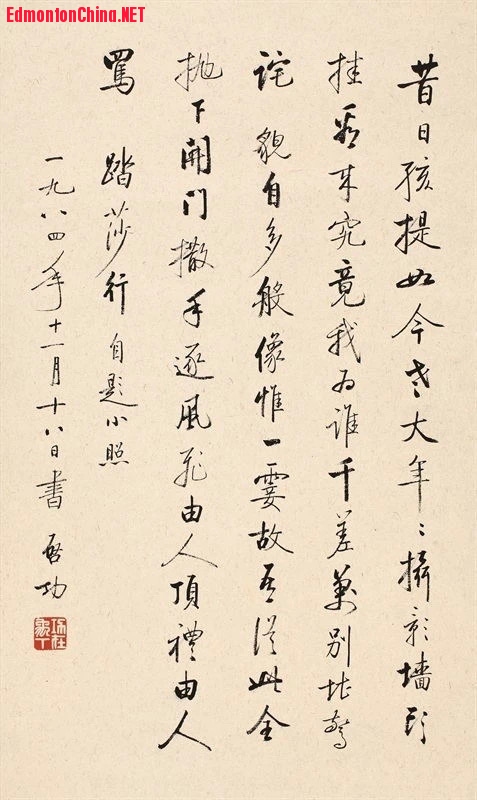 EdmontonChina.NET
昔日孩提如今老大年〻攝影墻頭
挂看来究竟我为誰千差萬别堪驚
詫貌自多般像惟一霎故吾從此全
拋下開門撒手逐風飛由人頂禮由人
罵 踏莎行 自題小照
一九八四年十一月十八日書 啓功